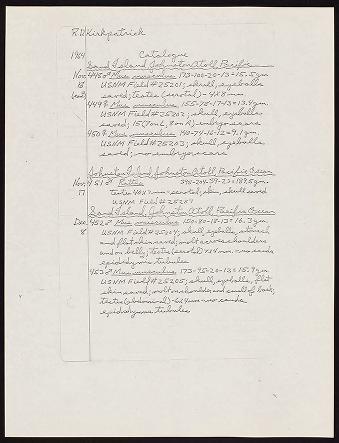 R.D. Kirkpatrick
1964 Catalogue
Sand Island, Johnston Atoll, Pacific
Nov. 448♂ Mus musculus 173-100-20-13=15.5 gm.
15 USNM Field #25201; skull, eyeballs
saved; testes (scrotal) - 4x8 mm
449♀ Mus musculus 155-78-17-13=13.4 gm.
USNM Field #25202; skull, eyeballs
saved; 15 (7 on L, 8 on R) embryo scars
450♀ Mus musculus 148-74-16-12=9.1 gm.
USNM Field #25203; skull, eyeballs
saved; no embryo scars
Johnston Island, Johnston Atoll, Pacific Ocean
Nov. 451♂ Rattus
17 testes 40x? mm scrotal; skin, skull saved
USNM Field #25207
Sand Island, Johnston Atoll, Pacific Ocean
Dec. 452♂ Mus musculus 150-80-18-13=16.3 gm.
8 USNM Field #25204; skull, eyeballs, stomach
and flat skin saved; molt across shoulders
and on belly; testes (scrotal) 7x4 mm - no cauda
epididymis tubules
453♂ Mus musculus 173-95-20-13=15.9 gm.
USNM Field #25205; skull, eyeballs, flat
skin saved; molt on shoulders and small of back;
testes (abdominal) - 6x4 mm no cauda
epididymis tubules